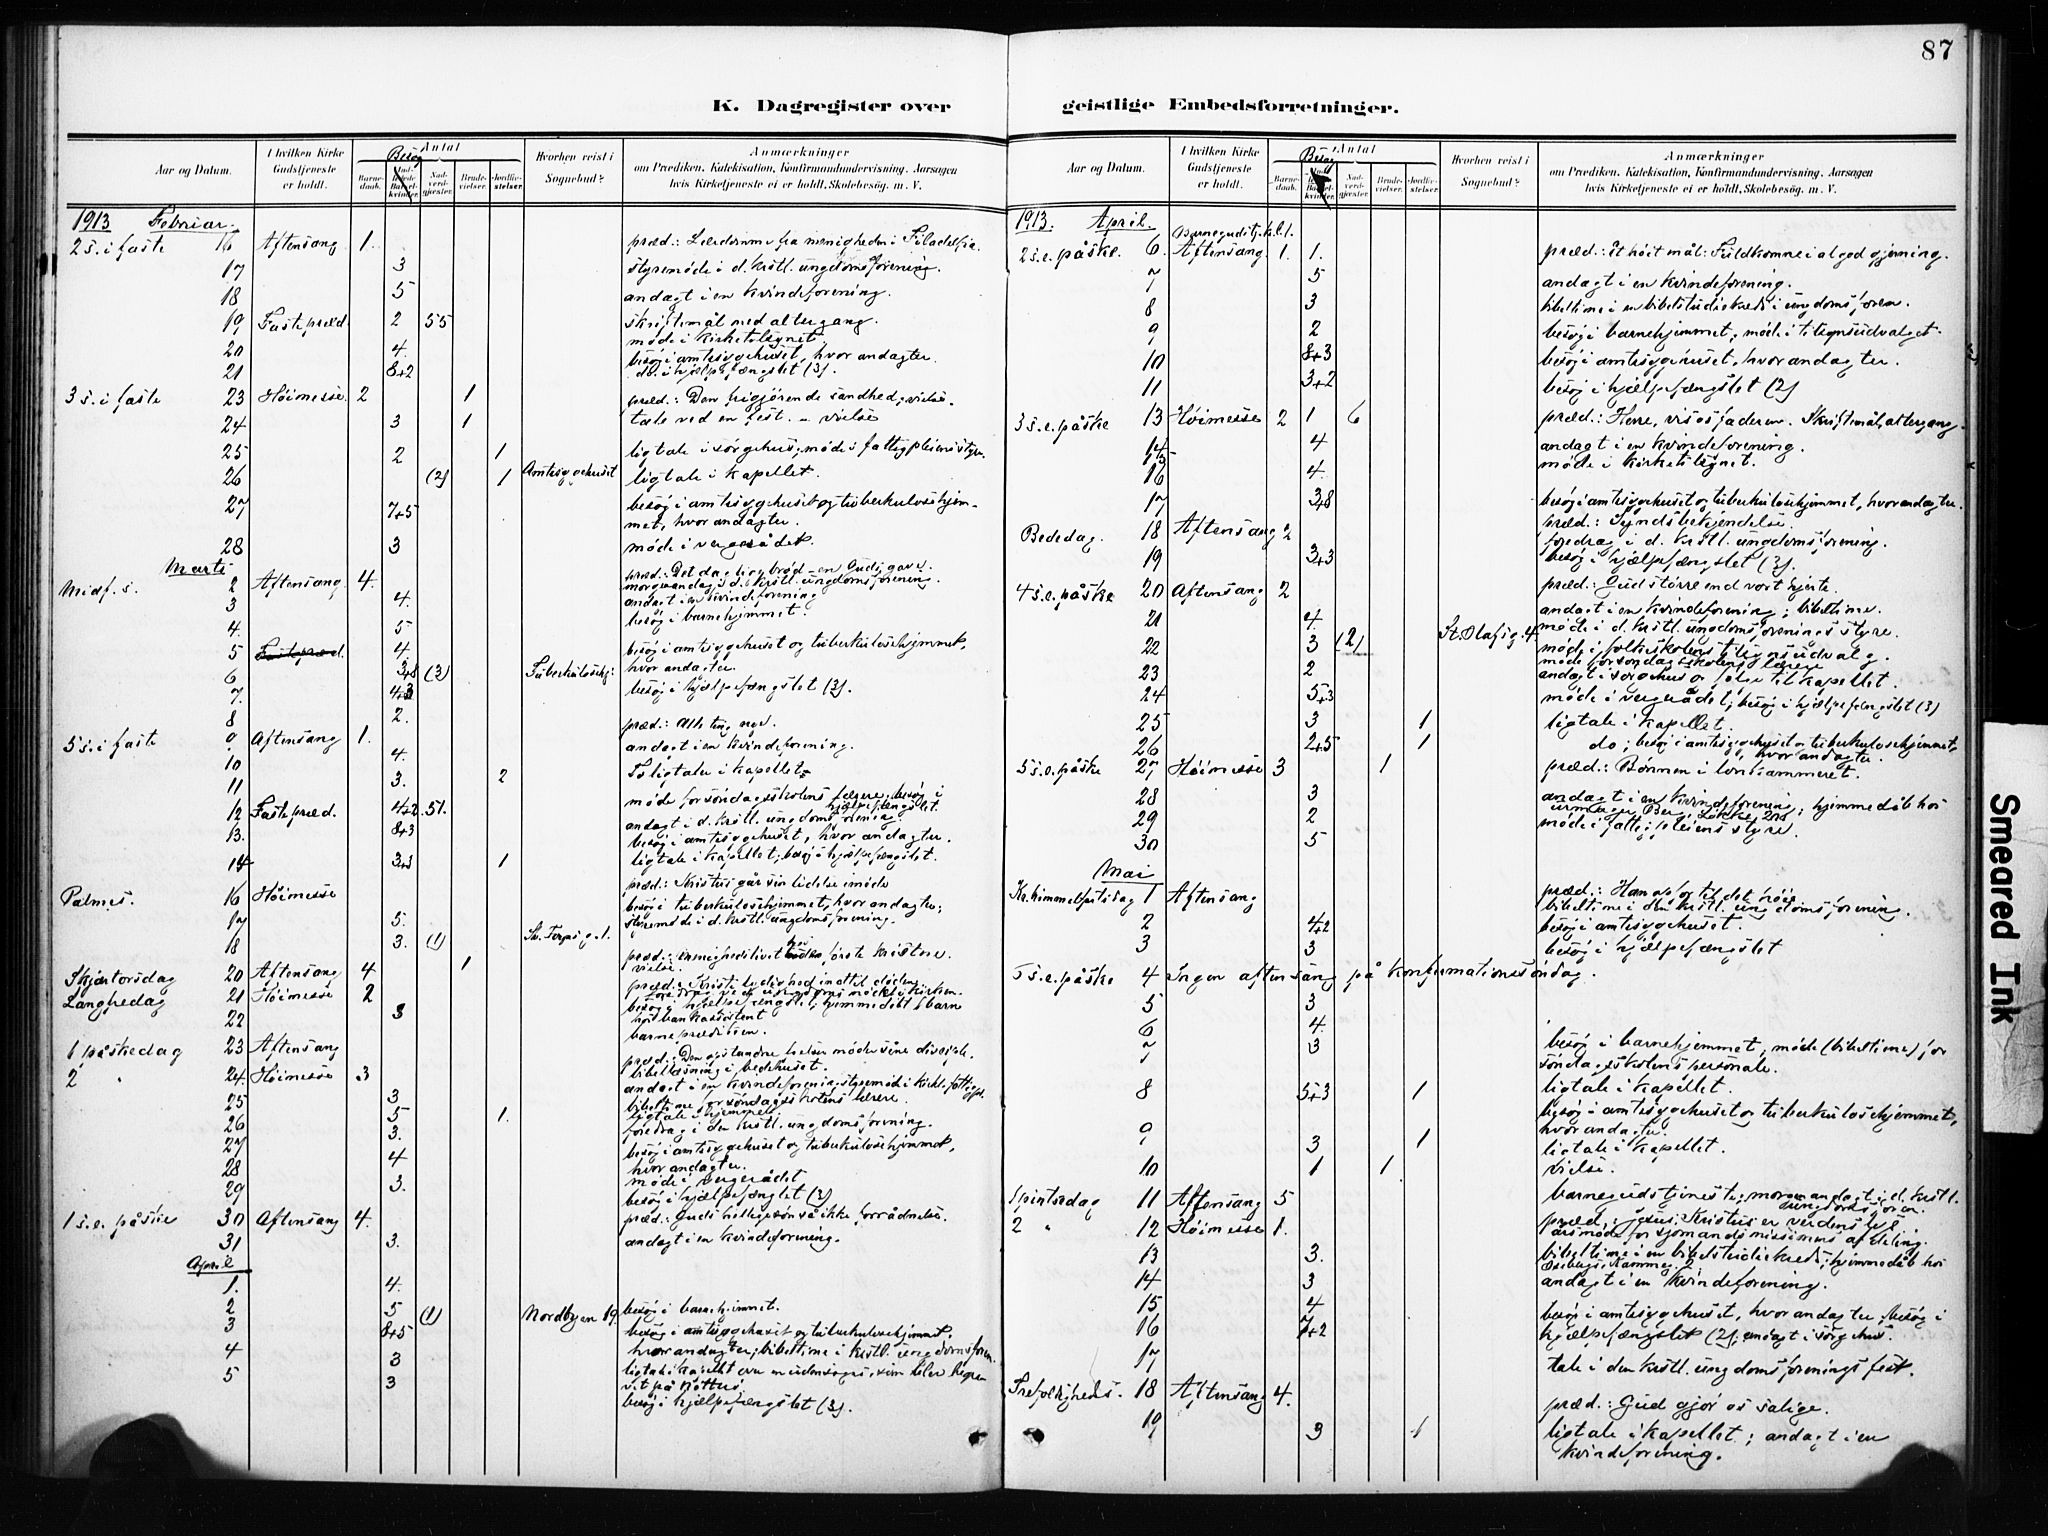 87
K. Dagregister over
geistlige Embedsforretninger.
Aar og Datum.
I hvilken Kirke Gudstjeneste er holdt.
Antal
Besøg
Barnedaab.
Nadverdgjester.
Brudevielser.
Jordfæstelser.
Hvorhen reist i Sognebud?
Anmærkninger
om Prædiken. Katekisation, Konfirmandundervisning. Aarsagen
hvis Kirketjeneste ei er holdt. Skolebesøg. m. V.
1913 Februar.
2 s. i faste 16 Aftensang 1. præd.: Lærdomme fra menigheden i Filadelfia.
17 3 styremøde i d. kristl. ungdomsforening.
18 5 andagt i en kvindeforening.
19 Fastepræd. 2 55 skriftemål med altergang.
møde i kirketilsynet.
20 4. besøg i amtssygehuset, hvor andagter.
21 8+2 do. i hjælpefængslet (3).
3 s. i faste 23 Høimesse 2 1 præd.: Den frigjørende sandhed; vielse.
24 3 1 tale ved en fest. – vielse
25 2 1 ligtale i sørgehus; møde i fattigpleiens styre.
26 (2) 1 Amtssygehuset ligtale i kapellet.
27 7+5 besøg i amtssygehuset og tuberkulosehjem-
met, hvor andagter.
28 3 møde i vergerådet.
Marts
Midf. s. 2 Aftensang 4. præd.: Det daglige brød – en Guds gave.
morgenandagt i d. kristl. ungdomsforening.
3 4. andagt i en kvindeforening
4. 5 besøg i barnehjemmet.
5 Fastepræd. 4. besøg i amtssygehuset og tuberkulosehjemmet,
6 3+8 (3) Tuberkulosehj: hvor andagter.
7. 4+3 besøg i hjælpefængslet (3).
8 2.
5 s. i faste 9 Aftensang 1. præd.: Alle ting nye.
10 4. andagt i en kvindeforening.
11 3. 2 To ligtaler i kapellet
12 Fastepræd. 4+2 51. møde for søndagsskolens lærere; besøg i
hjælpefængslet.
andagt i d. kristl. ungdomsforening
13. 8+3 besøg i amtssygehuset, hvor andagter.
14 3+3 1 ligtale i kapellet; besøg i hjælpefængslet.
Palmes. 16 Høimesse præd.: Kristus går sin lidelse imøde
besøg i tuberkulosehjemmet, hvor andagter;
17 5. styremøde i d. kristl. ungdomsforening.
18 3. (1)
Skjærtorsdag 20 Aftensang 4 1 præd.: første kristne.
vielse.
Langfredag 21 Høimesse 2 præd.: Kristi lydighed indtil døden.
22 3 besøg i hjælpefængslet; hjemmedøbt 1 barn
hos bankassistent
barneprædiken.
1 påskedag 23 Aftensang præd.: Den opstandne frelser møder sine disciple.
2 " 24. Høimesse 3 bibellæsning i bedehuset.
andagt i en kvindeforening
25 3 bibeltime for søndagsskolens lærere.
5 1. ligtale i hjemmet.
26 3. foredrag i den kristl. ungdomsforening.
27 besøg i amtssygehuset og tuberkulosehjemmet,
28 4 hvor andagter.
møde i vergerådet
29 3. besøg i hjælpefængslet (3)
1 s. e. påske 30 Aftensang 4. præd.: Guds hellige så ikke forrådnelse.
31 3. andagt i en kvindeforening.
April
1. 4.
2 5 (1) Nordbyen 19. besøg i barnehjemmet.
3 8+5 besøg i amtssygehuset og tuberkulosehjemmet,
4 3 hvor andagter; bibeltime i kristl. ungdomsforen.
5 3 ligtale i kapellet over en udensogns, som blev begra-
vet på
besøg i hjælpefængslet (3).
Aar og Datum.
I hvilken Kirke Gudstjeneste er holdt.
Antal
Besøg
Barnedaab.
Nadverdgjester.
Brudevielser.
Jordfæstelser.
Hvorhen reist i Sognebud?
Anmærkninger
om Prædiken. Katekisation, Konfirmandundervisning. Aarsagen
hvis Kirketjeneste ei er holdt. Skolebesøg. m. V.
1913. April.
2 s. e. påske. 6. Aftensang. 1. 1. præd.: Et høit mål: Fuldkomne i al god gjerning.
7 5 andagt i en kvindeforening.
8 3 bibeltime i en bibelstudiekreds i ungdomsforen.
9 2 besøg i barnehjemmet, møde i tilsynsudvalget.
10 8+3 besøg i amtssygehuset, hvor andagter.
11 3+2 besøg i hjælpefængslet (2)
3 s. e. påske 13 Høimesse 2 1 6 præd.: Herre, vis os faderen. Skriftemål, altergang.
14 4 andagt i en kvindeforening.
15 møde i kirketilsynet.
16 4.
17 3+8 besøg i amtssygehuset og tuberkulosehjemmet, hvor andagter.
Bededag. 18 Aftensang 2 præd.: Syndsbekjendelse.
foredrag i d. kristl. ungdomsforening.
19 3+3 besøg i hjælpefængslet (3).
4 s. e. påske 20 Aftensang 2 præd.: Gud større end vort hjerte.
21 4. andagt i en kvindeforening; bibeltime.
møde i d. kristl. ungdomsforenings styre.
22 3 (2) St. Olafsg. 4. møde i folkeskolens tilsynsudvalg.
møde for søndagsskolens lærere
23 2 andagt i sørgehus til kapellet.
24 5+3 møde i vergerådet; besøg i hjælpefængslet (3)
25 3 1 ligtale i kapellet.
26 2+5 1 do; besøg i amtssygehuset og tuberkulosehjemmet,
hvor andagter.
5 s. e. påske 27 Høimesse 3 1 præd.: Bønnen i lønkammeret.
28 3 andagt i en kvindeforening; hjemmedåb hos
29 2
30 5 møde i fattigpleiens styre.
Mai
Kr. himmelfartsdag 1 Aftensang præd.: Han op for til det høie.
bibeltime i den kristl. ungdomsforening.
2 4+2 besøg i amtssygehuset.
3 3 besøg i hjælpefængslet
s. e. påske 4 Ingen aftensang på konfirmationssøndag.
5 3
6 4.
7 3 besøg i barnehjemmet, møde (bibeltime) for
søndagsskolens personale.
8 5+3 1 ligtale i kapellet.
besøg i amtssygehuset og tuberkulosehjemmet,
hvor andagter.
9 3 1 ligtale i kapellet.
10 1 1 vielse.
1 pintsedag 11 Aftensang 5 barnegudstjeneste; morgenandagt i d. kristl.
ungdomsforen.
2 " 12 Høimesse 1. præd.: Jesus Kristus er verdens lys.
årsmøde for sjømandsmissionens afdeling.
13 3. bibeltime i en bibelstudiekreds; hjemmedåb hos
14 3 andagt i en kvindeforening.
15 4 besøg i amtssygehuset, hvor andagter, besøg i
16 7+2 hjælpefængslet (2); andagt i sørgehus.
17 tale i den kristl. ungdomsforenings fest.
Trefoldigheds. 18 Aftensang 4. præd.: Gud gjør os salige.
19 3 1 ligtale i kapellet; andagt i en
kvindeforening.
Smeared Ink